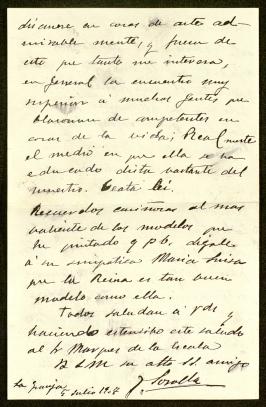 discurre en cosas de arte ad-
mirablemente, y fuera de
esto que tanto me interesa,
en general la encuentro muy
superior á muchas gentes que
blasonan de competentes en
cosas de la vida; Realmente
el medio en que ella se ha
educado dista bastante del
nuestro.
Recuerdos cariñosos al mas
valiente de los modelos que
he pintado q p b, digale
á su simpatica Maria Luisa
que la Reina es tan buen
modelo como ella.
Todos saludan á Vds y
haciendo extensivo este saludo
al Sr Marques de la Escala
B L M su afto SS amigo
J Sorolla
La Granja
5 Julio 1907